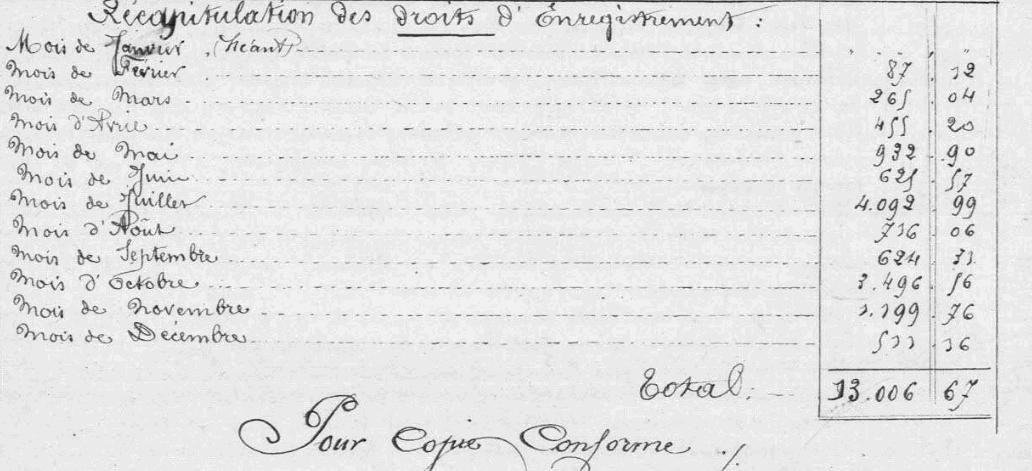 Récapitulation des droits d'Enregistrement :
Mois de Janvier (Néant) " "
Mois de Février 87. 12
Mois de Mars 265. 04
Mois d'Avril 455. 20
Mois de Mai 932. 90
Mois de Juin 625. 57
Mois de Juillet 4.092. 99
Mois d'Août 716. 06
Mois de Septembre 624. 31
Mois d'Octobre 3.496. 56
Mois de Novembre 1.199. 76
Mois de Décembre 511. 16
Total: 13.006 67
Pour Copie Conforme ./.